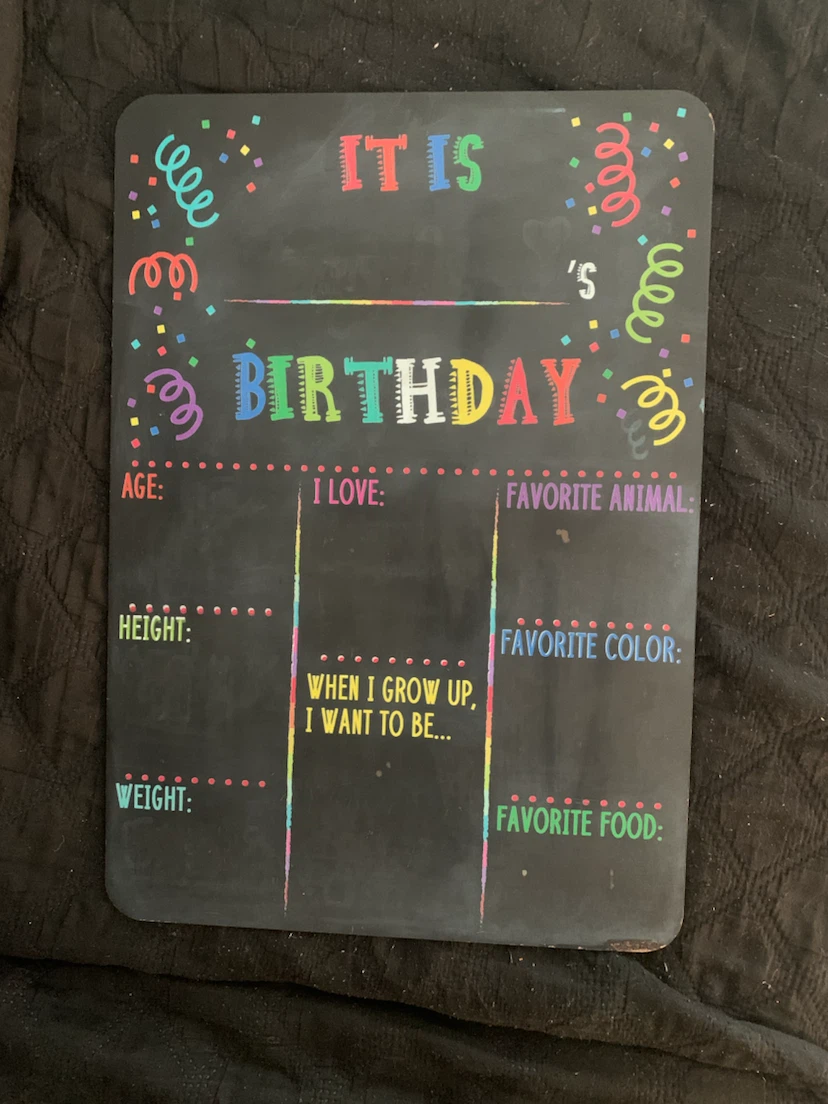 IT IS
'S
BIRTHDAY
AGE:
I LOVE:
FAVORITE ANIMAL:
HEIGHT:
FAVORITE COLOR:
WHEN I GROW UP,
I WANT TO BE...
WEIGHT:
FAVORITE FOOD: